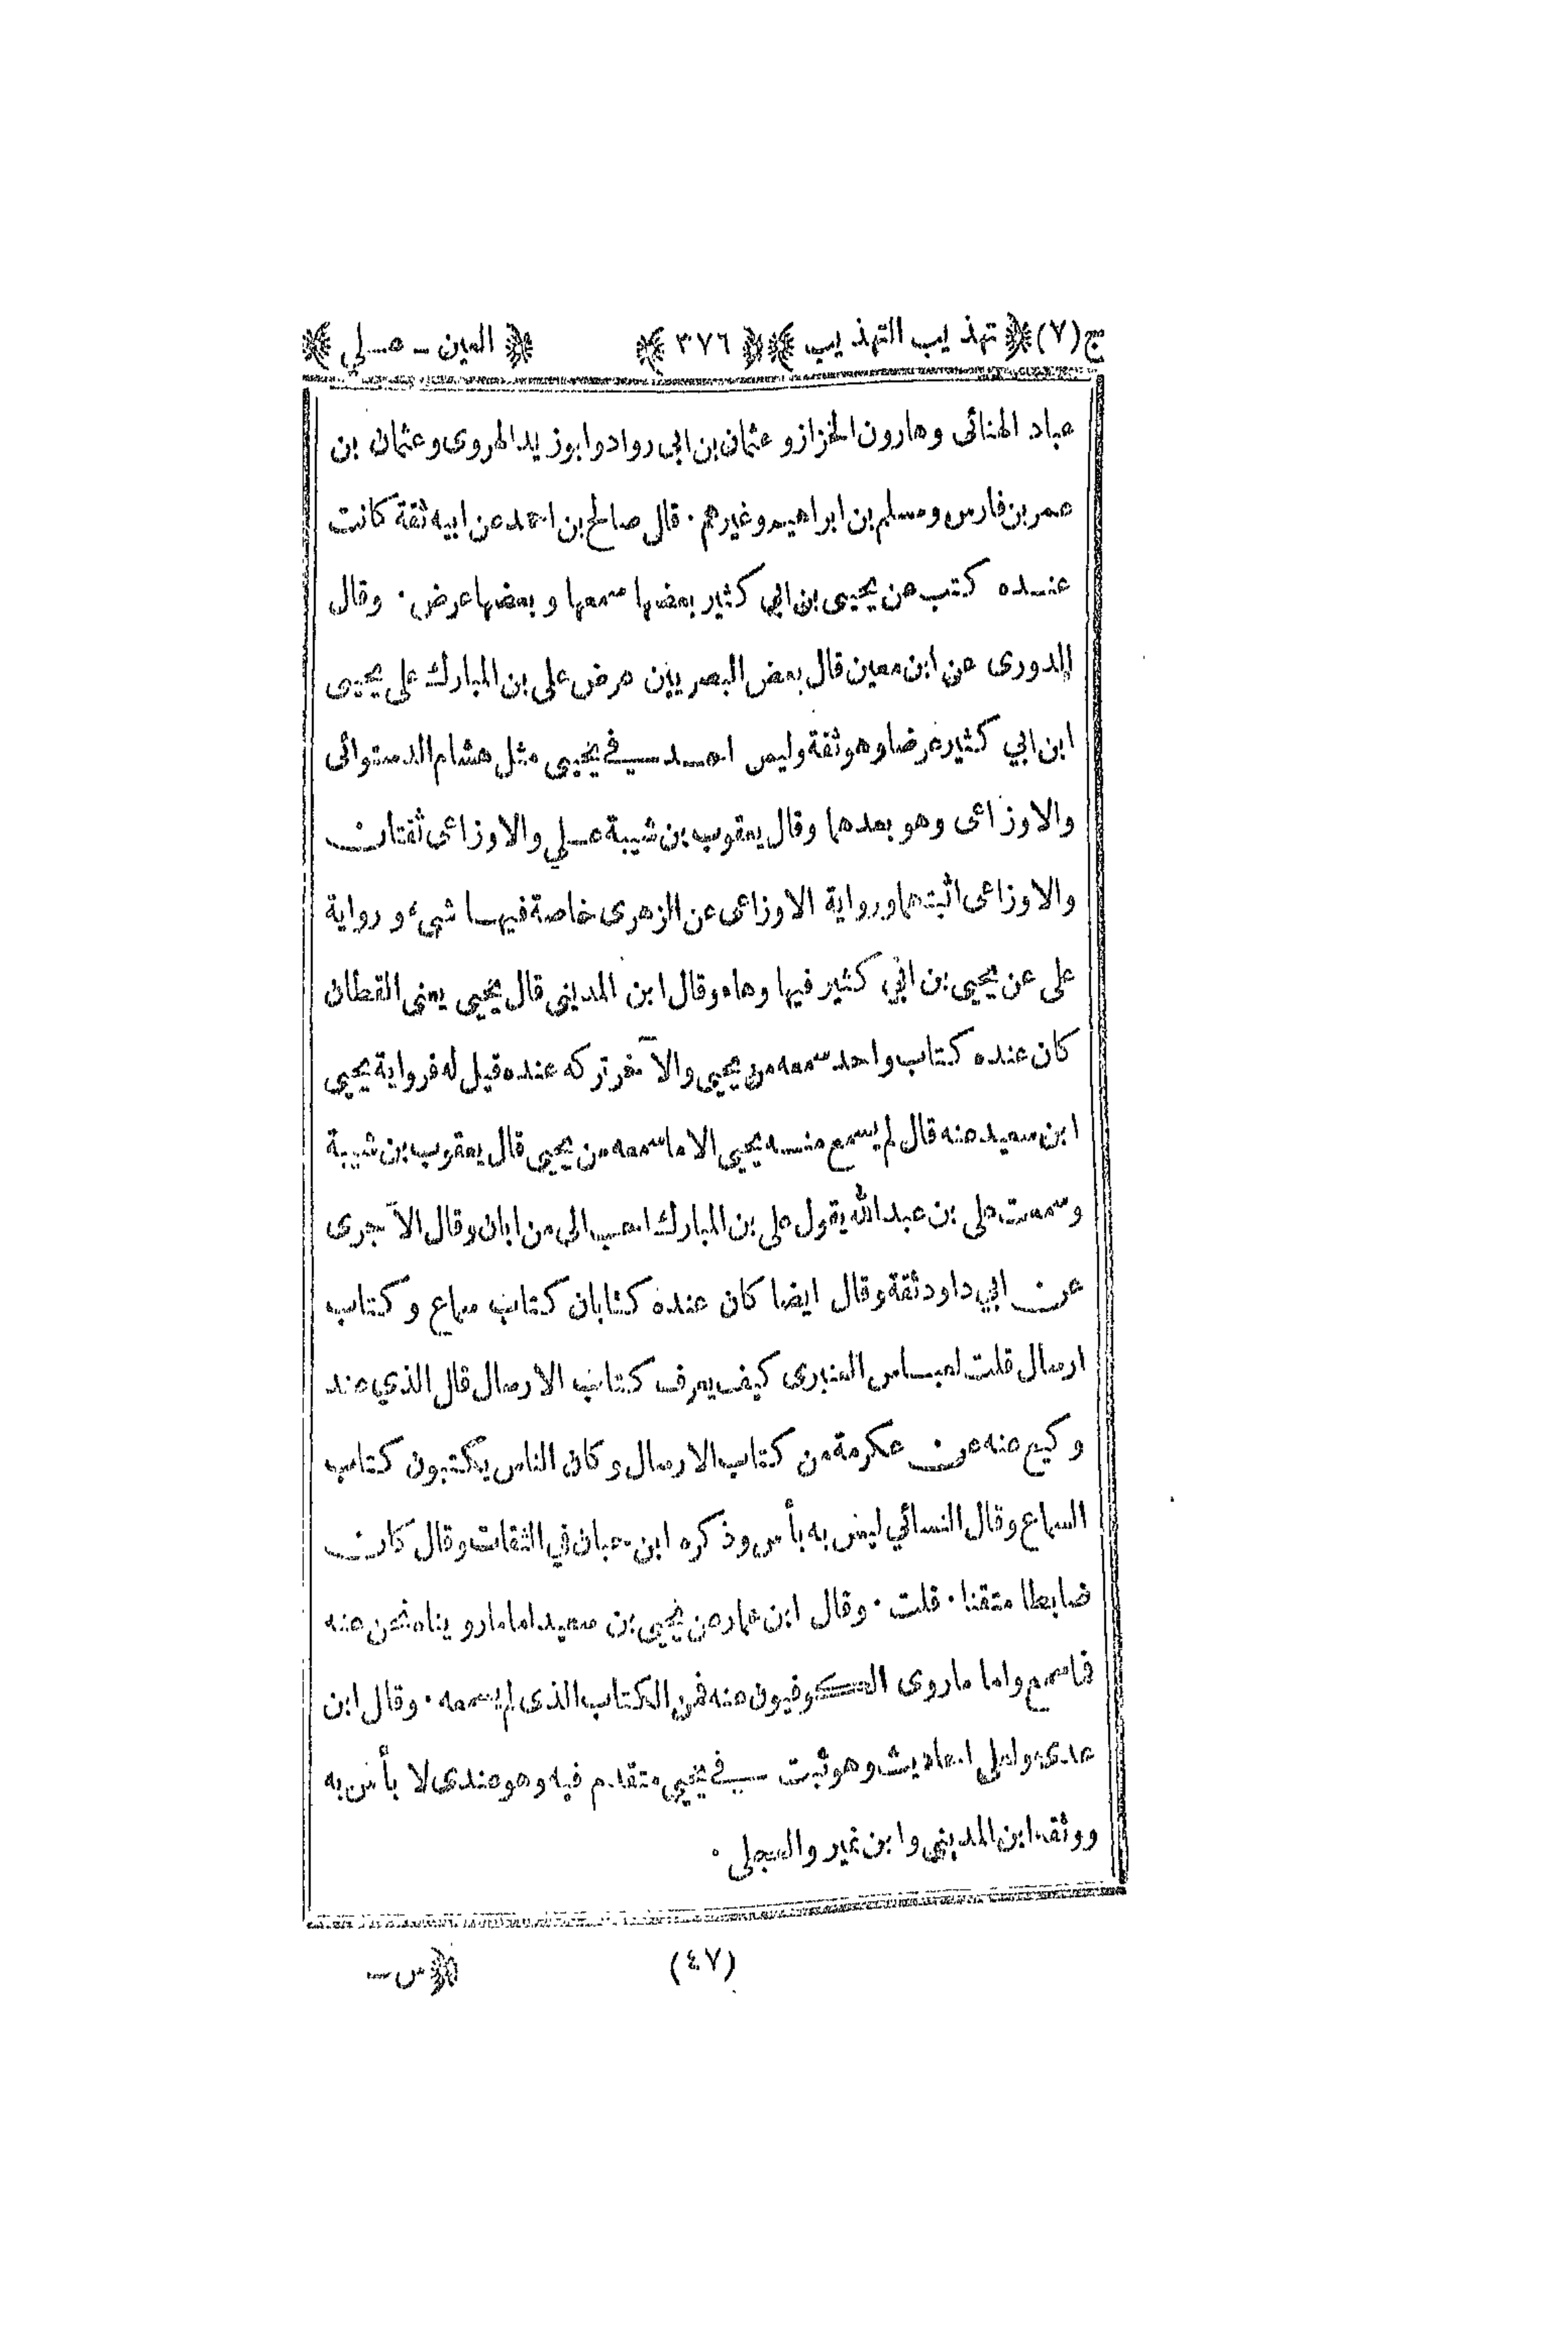 ج(٧) ﴿ تهذيب التهذيب ﴾ ﴿ ٣٧٦ ﴾ ﴿ العين - علي ﴾
عباد الهنائى وهارون الخزاز وعثمان بن ابى رواد وابو زيد الهروى وعثمان بن
عمر بن فارس ومسلم بن ابراهيم وغيرهم · قال صالح بن احمد عن ابيه ثقة كانت
عنده كتب عن يحيى بن ابي كثير بعضها سمعها وبعضها عرض · وقال
الدورى عن ابن معين قال بعض البصريين عرض على بن المبارك على يحيى
ابن ابي كثير عرضا وهو ثقة وليس احد في يحيى مثل هشام الدستوائى
والاوزاعى وهو بعدهما وقال يعقوب بن شيبة علي والاوزاعى ثقتان
والاوزاعى اثبتهما ورواية الاوزاعى عن الزهرى خاصة فيها شيء ورواية
على عن يحيى بن ابي كثير فيها وهاء وقال ابن المدينى قال يحيى يعنى القطان
كان عنده كتاب واحد سمعه من يحيى والآخر تركه عنده قيل له فرواية يحيى
ابن سعيد عنه قال لم يسمع منه يحيى الا ما سمعه من يحيى قال يعقوب بن شيبة
وسمعت على بن عبدالله يقول على بن المبارك احب الى من ابان وقال الآجرى
عن ابي داود ثقة وقال ايضا كان عنده كتابان كتاب سماع وكتاب
ارسال قلت لعباس العنبرى كيف يعرف كتاب الارسال قال الذي عند
وكيع عنه عن عكرمة من كتاب الارسال وكان الناس يكتبون كتاب
السماع وقال النسائي ليس به بأس وذكره ابن حبان في الثقات وقال كان
ضابطا متقنا · قلت · وقال ابن عمار عن يحيى بن سعيد اما ما رويناه نحن عنه
فما سمع واما ما روى الكوفيون عنه فمن الكتاب الذى لم يسمعه · وقال ابن
عدى ولعلي احاديث وهو ثبت في يحيى متقدم فيه وهو عندى لا بأس به
ووثقه ابن المدينى وابن نمير والعجلى ·
(٤٧) ﴿ س -